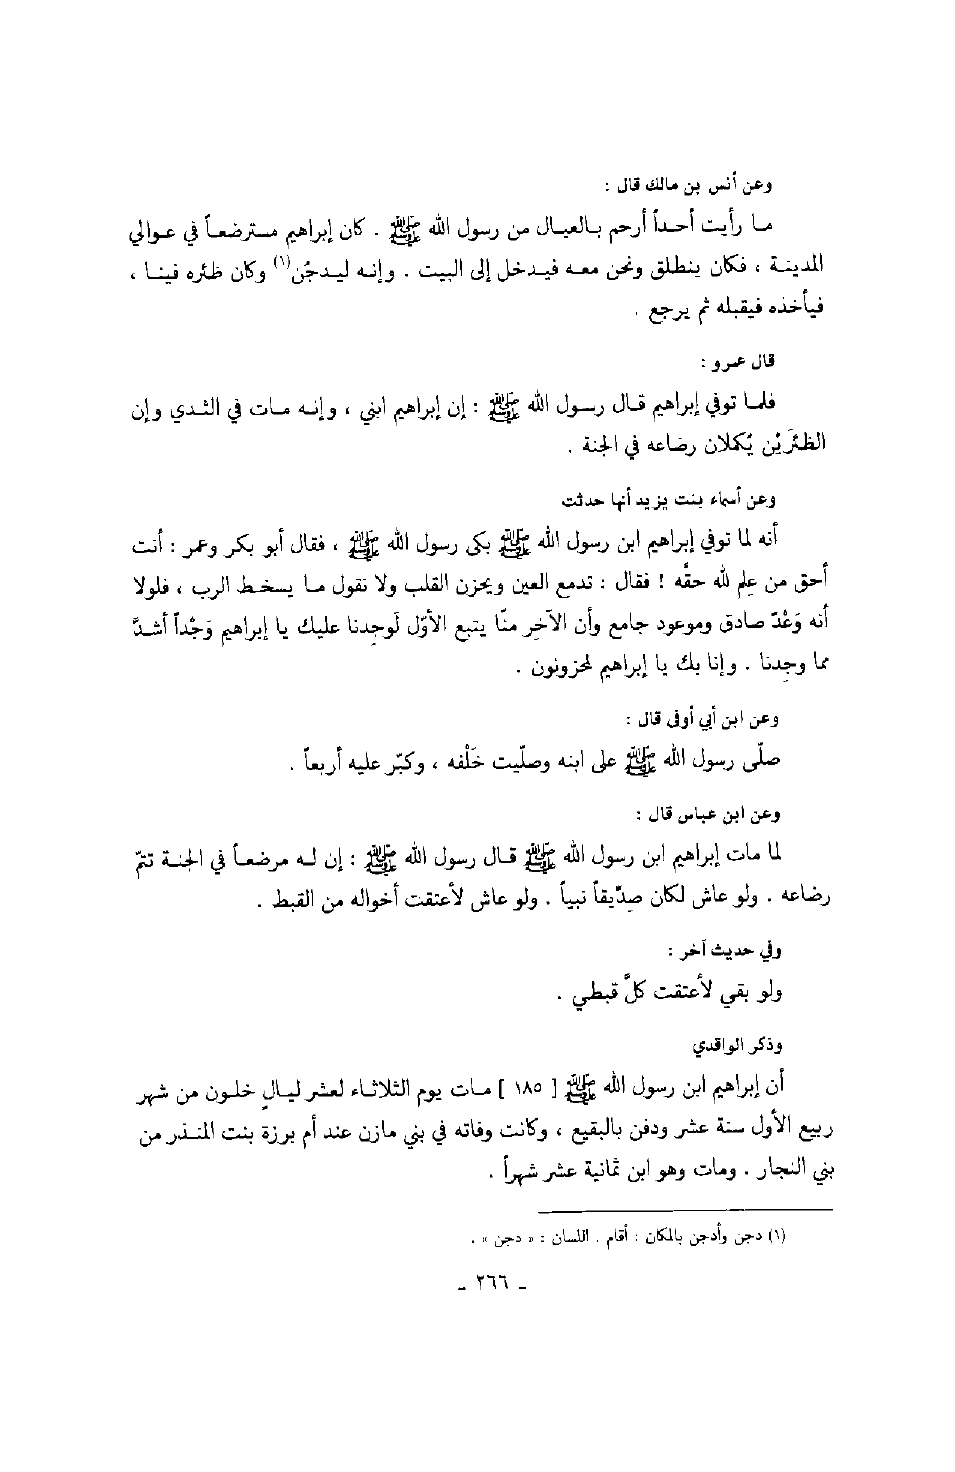 وعن أنس بن مالك قال :
ما رأيت أحداً أرحم بالعيال من رسول الله ﷺ . كان إبراهيم مسترضعاً في عوالي
المدينة ، فكان ينطلق ونحن معه فيدخل إلى البيت . وإنه ليدجُن(١) وكان ظئره قينا ،
فيأخذه فيقبله ثم يرجع .
قال عمرو :
فلما توفي إبراهيم قال رسول الله ﷺ : إن إبراهيم ابني ، وإنه مات في الثدي وإن
الظئرَيْن يُكملان رضاعه في الجنة .
وعن أسماء بنت يزيد أنها حدثت
أنه لما توفي إبراهيم ابن رسول الله ﷺ بكى رسول الله ﷺ ، فقال أبو بكر وعمر : أنت
أحق من عِلم لله حقَّه ! فقال : تدمع العين ويحزن القلب ولا نقول ما يسخط الرب ، فلولا
أنه وَعْدٌ صادق وموعود جامع وأن الآخِر منّا يتبع الأوّل لَوجِدنا عليك يا إبراهيم وَجْداً أشدَّ
مما وجِدنا . وإنا بك يا إبراهيم لمحزونون .
وعن ابن أبي أوفى قال :
صلّى رسول الله ﷺ على ابنه وصلّيت خَلْفه ، وكبّر عليه أربعاً .
وعن ابن عباس قال :
لما مات إبراهيم ابن رسول الله ﷺ قال رسول الله ﷺ : إن له مرضعاً في الجنة تتمّ
رضاعه . ولو عاش لكان صدِّيقاً نبياً . ولو عاش لأعتقت أخواله من القبط .
وفي حديث آخر :
ولو بقي لأعتقت كلَّ قبطي .
وذكر الواقدي
أن إبراهيم ابن رسول الله ﷺ [ ١٨٥ ] مات يوم الثلاثاء لعشر ليالٍ خلون من شهر
ربيع الأول سنة عشر ودفن بالبقيع ، وكانت وفاته في بني مازن عند أم برزة بنت المنذر من
بني النجار . ومات وهو ابن ثمانية عشر شهراً .
(١) دجن وأدجن بالمكان : أقام . اللسان : « دجن » .
- ٢٦٦ -